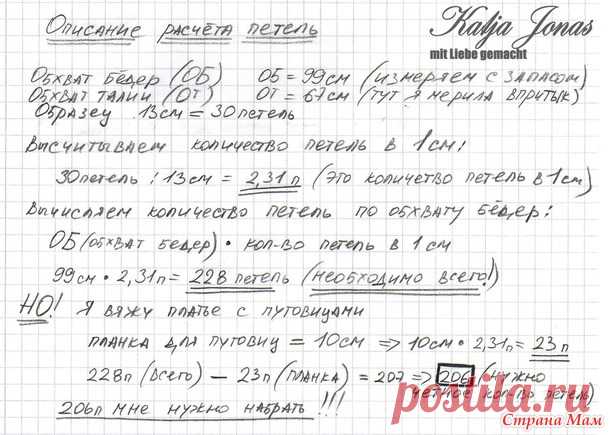 Описание расчёта петель
Katja Jonas
mit Liebe gemacht
Обхват бёдер (ОБ) ОБ = 99см (измеряем с запасом)
Обхват талии (ОТ) ОТ = 67см (тут я мерила впритык)
Образец 13см = 30петель
Высчитываем количество петель в 1см:
30петель : 13см = 2,31п (это количетво петель в 1см)
Вычисляем количество петель по обхвату бёдер:
ОБ (обхват бёдер) • кол-во петель в 1см
99см • 2,31п = 228 петель (необходимо всего!)
НО! Я вяжу платье с пуговицами
планка для пуговиц = 10см => 10см • 2,31п = 23п
228п (всего) – 23п (планка) = 207 => 206 (нужно
чётное кол-во петель)
206п мне нужно набрать!!!
postila.ru
Страна Мам